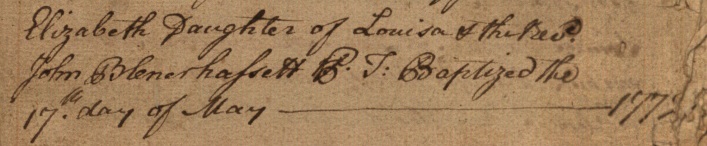 Elizabeth Daughter of Louisa & the Revd.
John Blenerhassett P. T: Baptized the
17th. day of May — 1772